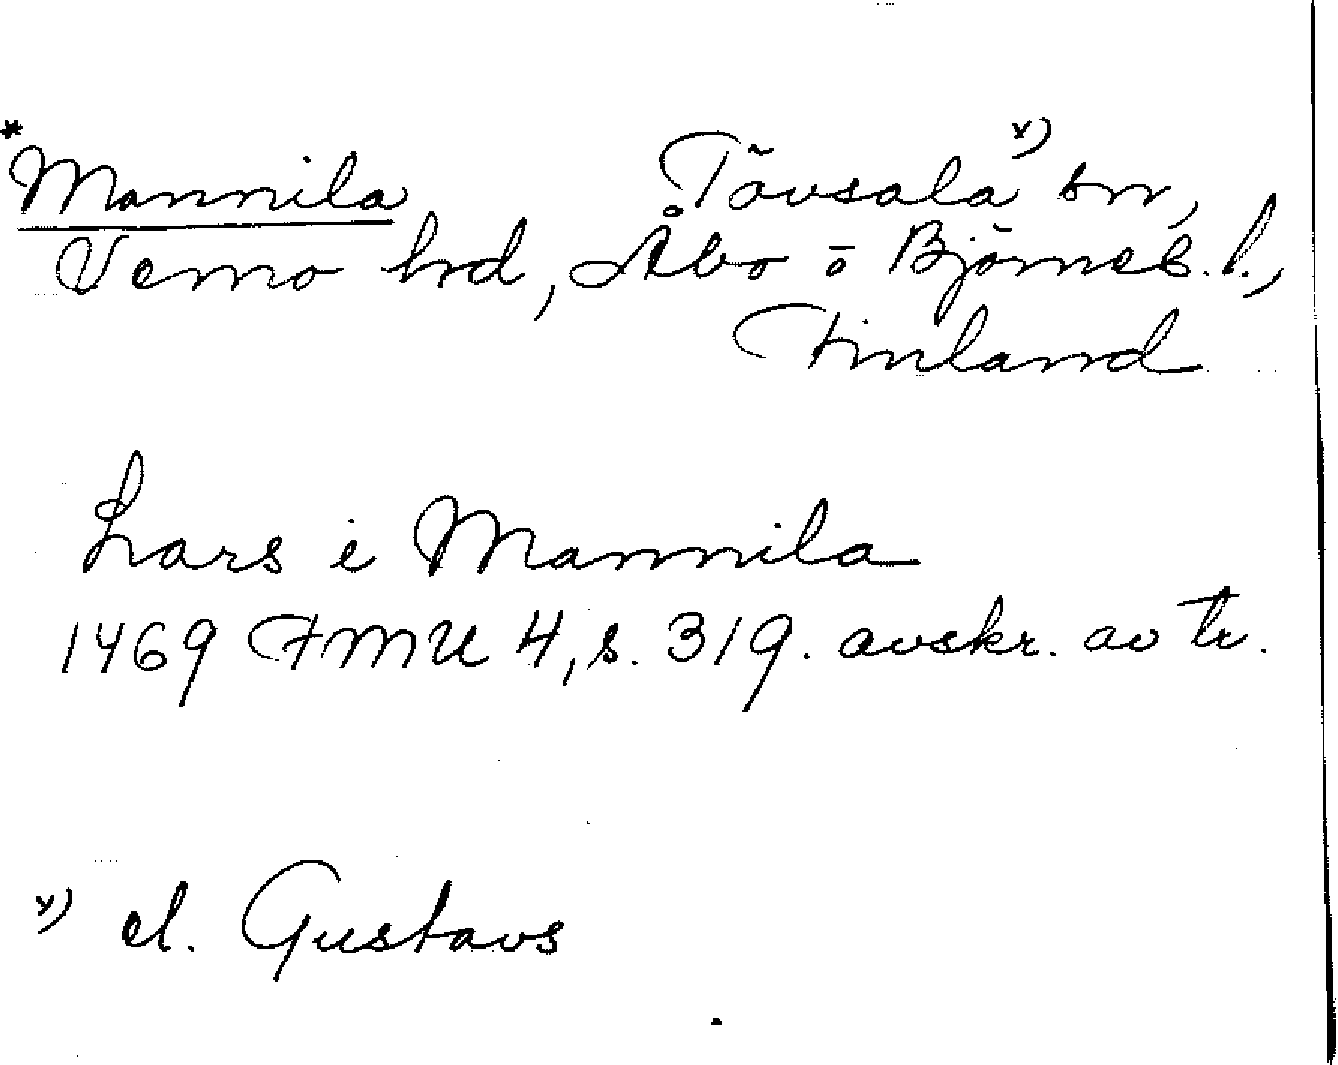 *Mannila Tövsala x) sn,
Vemo hrd, Åbo o Björneb. l.,
Finland
Lars i Mannila
1469 FMU 4, s. 319. avskr. av tr.
x) el. Gustavs